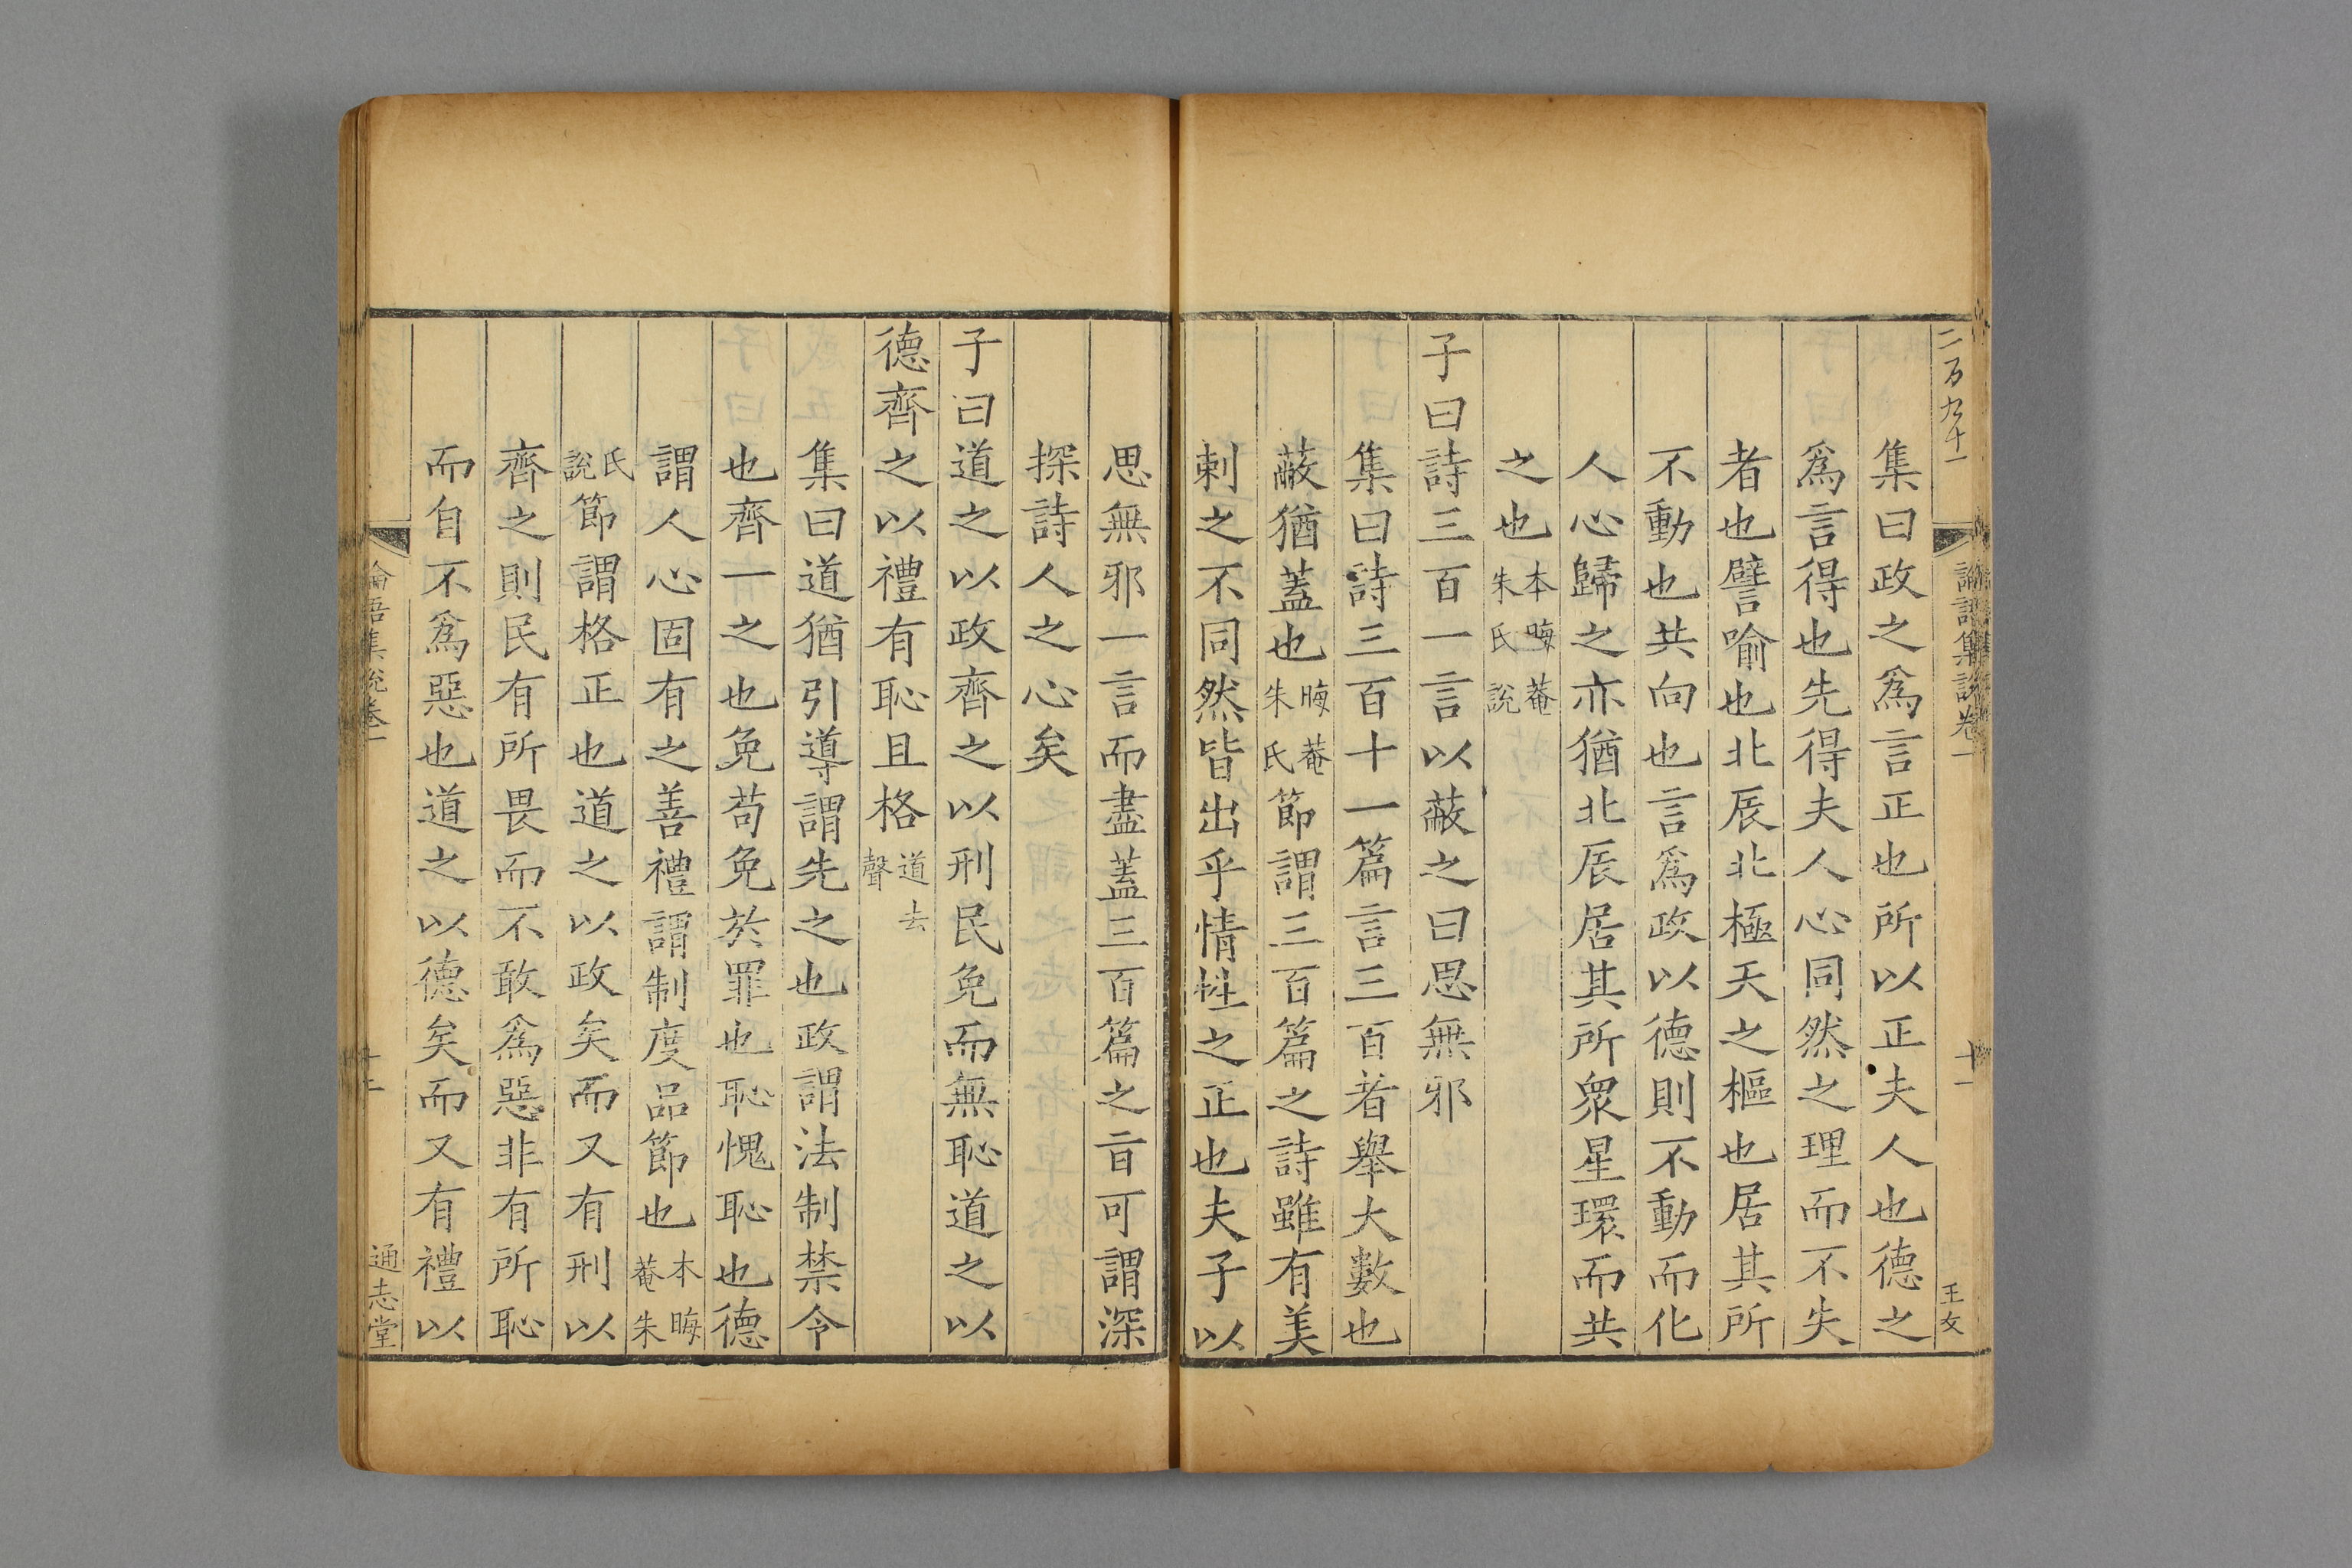 二百九十一
論語集說卷一
十一
王女
集曰政之爲言正也所以正夫人也德之
爲言得也先得夫人心同然之理而不失
者也譬喻也北辰北極天之樞也居其所
不動也共向也言爲政以德則不動而化
人心歸之亦猶北辰居其所衆星環而共
之也本晦菴朱氏說
子曰詩三百一言以蔽之曰思無邪
集曰詩三百十一篇言三百者舉大數也
蔽猶蓋也晦菴朱氏節謂三百篇之詩雖有美
刺之不同然皆出乎情性之正也夫子以
思無邪一言而盡蓋三百篇之旨可謂深
探詩人之心矣
子曰道之以政齊之以刑民免而無恥道之以
德齊之以禮有恥且格道去聲
集曰道猶引導謂先之也政謂法制禁令
也齊一之也免苟免於罪也恥愧恥也德
謂人心固有之善禮謂制度品節也本晦菴朱
氏說節謂格正也道之以政矣而又有刑以
齊之則民有所畏而不敢爲惡非有所恥
而自不爲惡也道之以德矣而又有禮以
論語集說卷一
通志堂